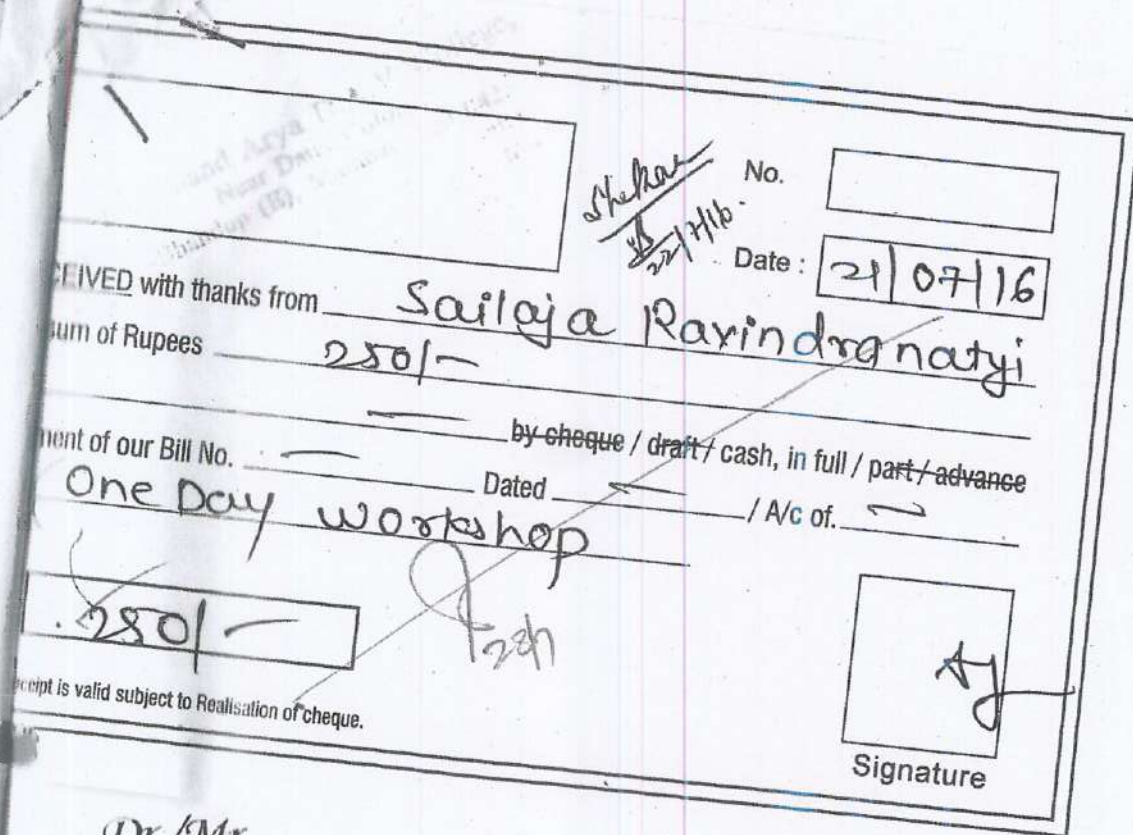 Shekar
22/7/16
No.
Date : 21/07/16
CEIVED with thanks from Sailaja Ravindranatyi
sum of Rupees 250/-
by cheque / draft / cash, in full / part / advance
ment of our Bill No. — Dated — / A/c of. —
One Day workshop
250/-
eceipt is valid subject to Realisation of cheque.
Signature
Dr./Mr.